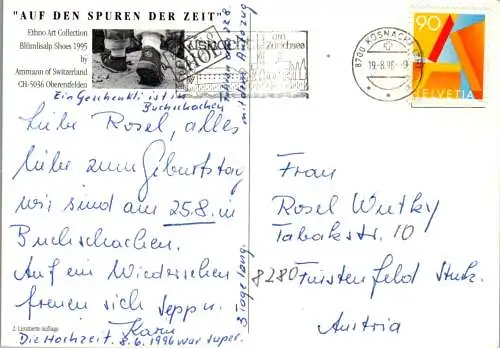 "AUF DEN SPUREN DER ZEIT"
Ethno Art Collection
Blümlisalp Shoes 1995
by
Ammann of Switzerland
CH-5036 Oberentfelden
Küsnacht am
Zürichsee
8700 KÜSNACHT
19.-8.96.-9
90
HELVETIA
Ein Geschenkli ist in
Buchschachen
Liebe Rosel, alles
liebe zum Geburtstag
wir sind am 25.8. in
Buchschachen.
Auf ein Wiedersehen
freuen sich Sepp u.
Karin
Die Hochzeit 8.6.1996 war super.
3 Tage lang.
mit dem Autozug
Frau
Rosel Wutky
Tabakstr. 10
8280 Fürstenfeld Stmk.
Austria
2. Limitierte Auflage